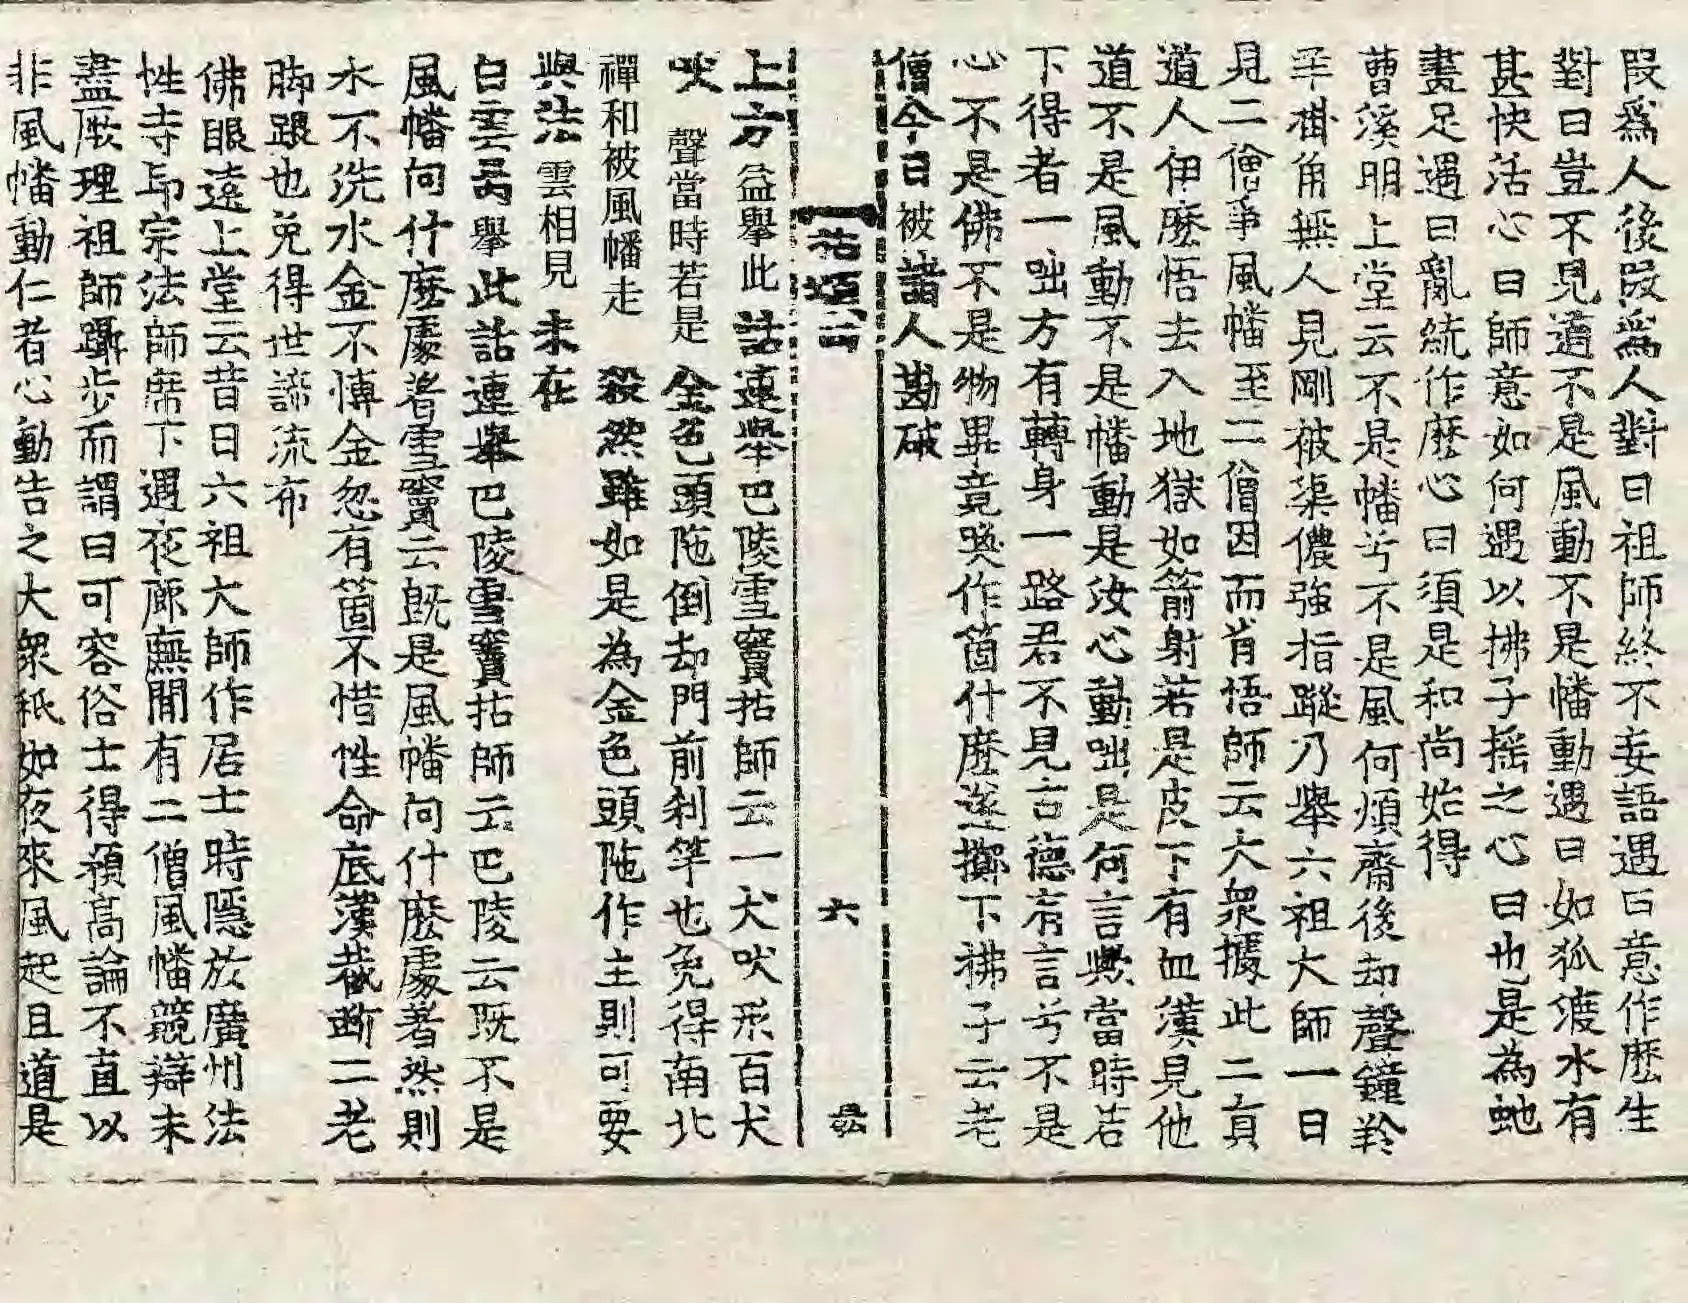 段爲人後段爲人對曰祖師終不妄語遇曰意作麽生
對曰豈不見道不是風動不是幡動遇曰如狐渡水有
甚快活心曰師意如何遇以拂子揺之心曰也是為虵
畫足遇曰亂統作麽心曰須是和尚始得
曹溪明上堂云不是幡兮不是風何煩齋後却聲鐘羚
羊掛角無人見剛被渠儂強指蹤乃擧六祖大師一日
見二僧爭風幡至二僧因而肯悟師云大衆據此二員
道人伊麽悟去入地獄如箭射若是皮下有血漢見他
道不是風動不是幡動是汝心動咄是何言歟當時若
下得者一咄方有轉身一路君不見古德有言兮不是
心不是佛不是物畢竟喚作箇什麽遂擲下拂子云老
僧今日被諸人勘破
拈頌云 六
上方益擧此話連擧巴陵雪竇拈師云一犬吠形百犬
吠聲當時若是金色頭陁倒却門前刹竿也免得南北
禪和被風幡走殺然雖如是為金色頭陁作主則可要
與法雲相見未在
白雲昺擧此話連擧巴陵雪竇拈師云巴陵云既不是
風幡向什麽處著雪竇云旣是風幡向什麽處著然則
水不洗水金不博金忽有箇不惜性命底漢截斷二老
脚跟也免得世諦流布
佛眼遠上堂云昔日六祖大師作居士時隱於廣州法
性寺印宗法師席下遇夜廊廡閒有二僧風幡競辯未
盡厥理祖師躡步而謂曰可容俗士得預高論不直以
非風幡動仁者心動告之大衆秖如夜來風起且道是